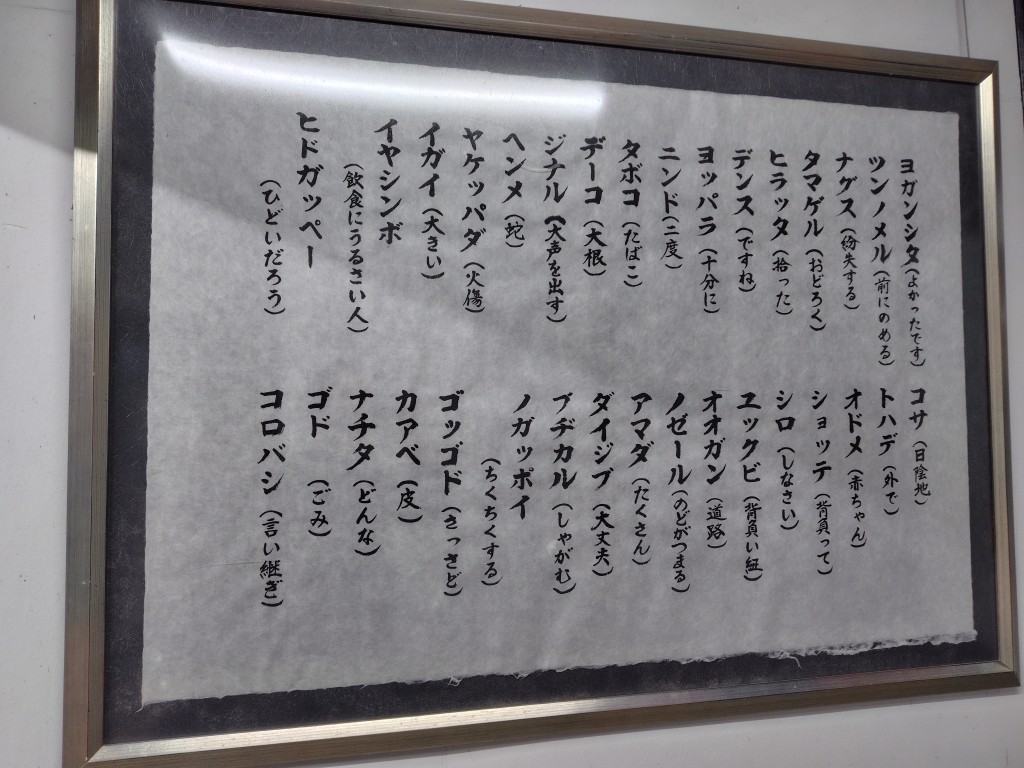 ヨガンシタ(よかったです)
ツンノメル(前にのめる)
ナゲス(紛失する)
タマゲル(おどろく)
ヒラッタ(拾った)
デンス(ですね)
ヨッパラ(十分に)
ニンド(二度)
タボコ(たばこ)
デーコ(大根)
ジナル(大声を出す)
ヘンメ(蛇)
ヤケッパダ(火傷)
イガイ(大きい)
イヤシンボ
(飲食にうるさい人)
ヒドガッペー
(ひどいだろう)
コサ(日陰地)
トハデ(外で)
オドメ(赤ちゃん)
ショッテ(背負って)
シロ(しなさい)
ヱックビ(背負い紐)
オオガン(道路)
ノゼール(のどがつまる)
アマダ(たくさん)
ダイジブ(大丈夫)
ブヂカル(しゃがむ)
ノガッポイ
(ちくちくする)
ゴッゴド(さっさど)
カアベ(皮)
ナチタ(どんな)
ゴド(ごみ)
コロバシ(言い継ぎ)